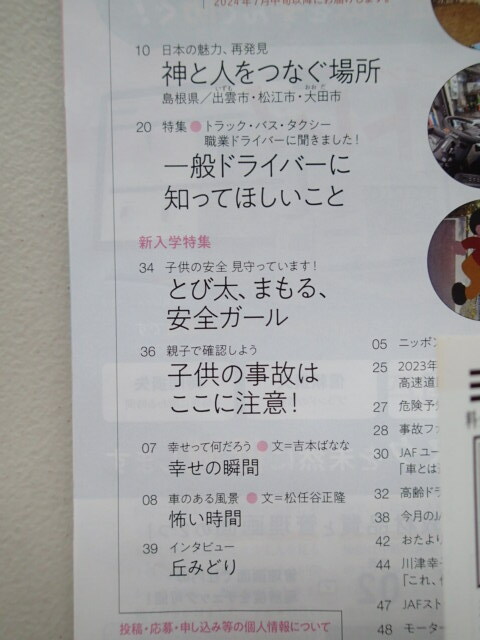 2024年7月中旬以降にお届けします。
10 日本の魅力、再発見
神と人をつなぐ場所
島根県／出雲市・松江市・大田市
20 特集●トラック・バス・タクシー
職業ドライバーに聞きました！
一般ドライバーに
知ってほしいこと
新入学特集
34 子供の安全 見守っています！
とび太、まもる、
安全ガール
36 親子で確認しよう
子供の事故は
ここに注意！
07 幸せって何だろう●文＝吉本ばなな
幸せの瞬間
08 車のある風景●文＝松任谷正隆
怖い時間
39 インタビュー
丘みどり
05 ニッポン
25 2023年
高速道
27 危険予
28 事故フ
30 JAFユー
「車とは
32 高齢ド
38 今月のJA
42 おたより
44 川津幸
「これ、
47 JAFスト
48 モーター
投稿・応募・申し込み等の個人情報について